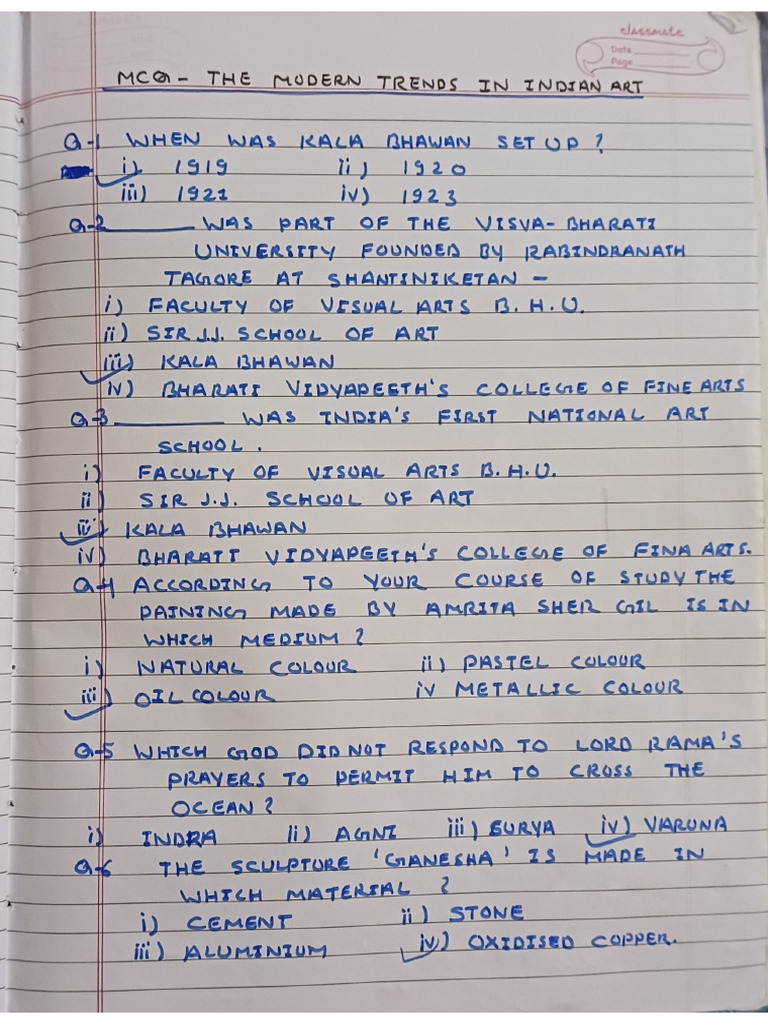 classmate
Date
Page
MCQ - THE MODERN TRENDS IN INDIAN ART
Q-1 WHEN WAS KALA BHAWAN SET UP?
i) 1919 ii) 1920
iii) 1921 iv) 1923
Q-2 ________ WAS PART OF THE VISVA-BHARATI
UNIVERSITY FOUNDED BY RABINDRANATH
TAGORE AT SHANTINIKETAN -
i) FACULTY OF VISUAL ARTS B.H.U.
ii) SIR J.J. SCHOOL OF ART
iii) KALA BHAWAN
iv) BHARATI VIDYAPEETH'S COLLEGE OF FINE ARTS
Q-3 ________ WAS INDIA'S FIRST NATIONAL ART
SCHOOL.
i) FACULTY OF VISUAL ARTS B.H.U.
ii) SIR J.J. SCHOOL OF ART
iii) KALA BHAWAN
iv) BHARATI VIDYAPEETH'S COLLEGE OF FINA ARTS.
Q-4 ACCORDING TO YOUR COURSE OF STUDY THE
PAINING MADE BY AMRITA SHER GIL IS IN
WHICH MEDIUM?
i) NATURAL COLOUR ii) PASTEL COLOUR
iii) OIL COLOUR iv METALLIC COLOUR
Q-5 WHICH GOD DID NOT RESPOND TO LORD RAMA'S
PRAYERS TO PERMIT HIM TO CROSS THE
OCEAN?
i) INDRA ii) AGNI iii) SURYA iv) VARUNA
Q-6 THE SCULPTURE 'GANESHA' IS MADE IN
WHICH MATERIAL?
i) CEMENT ii) STONE
iii) ALUMINIUM iv) OXIDISED COPPER.